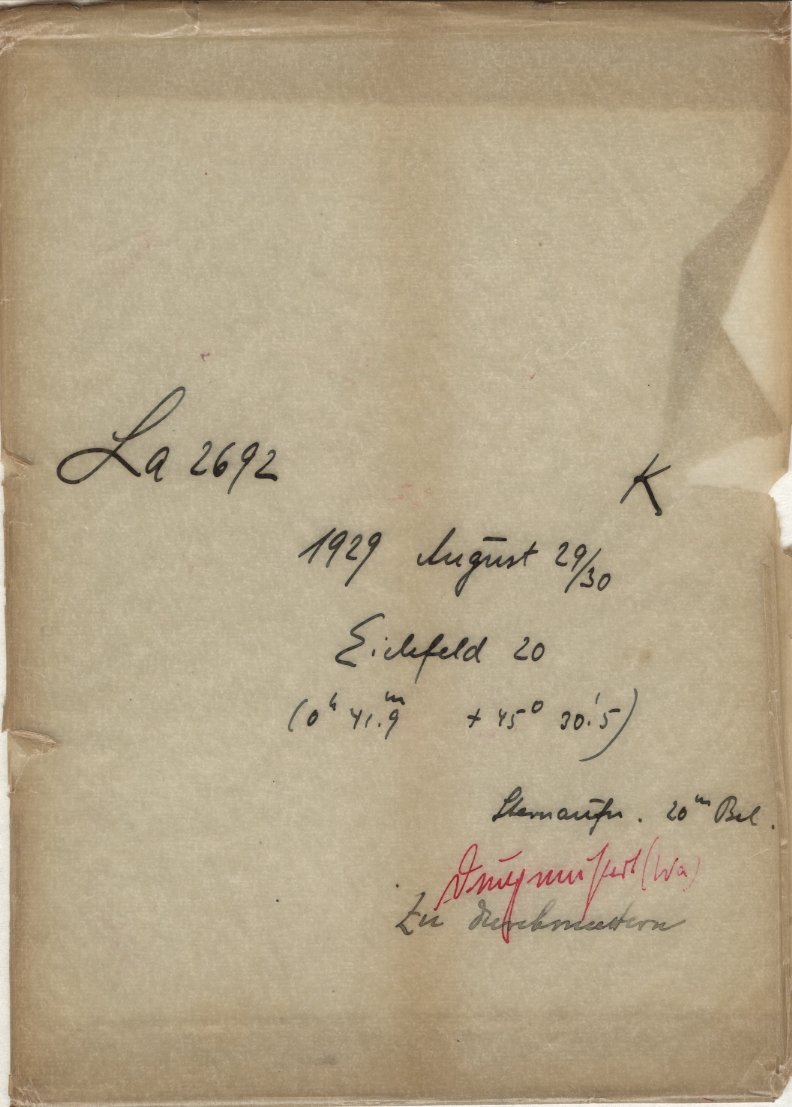 La 2692 K
1929 August 29/30
Eichfeld 20
(0ʰ 41.ᵐ9 + 45⁰ 30.'5)
Sternaufn. 20ᵐ Bel.
Durchmustert (Wa)
Zu durchmustern